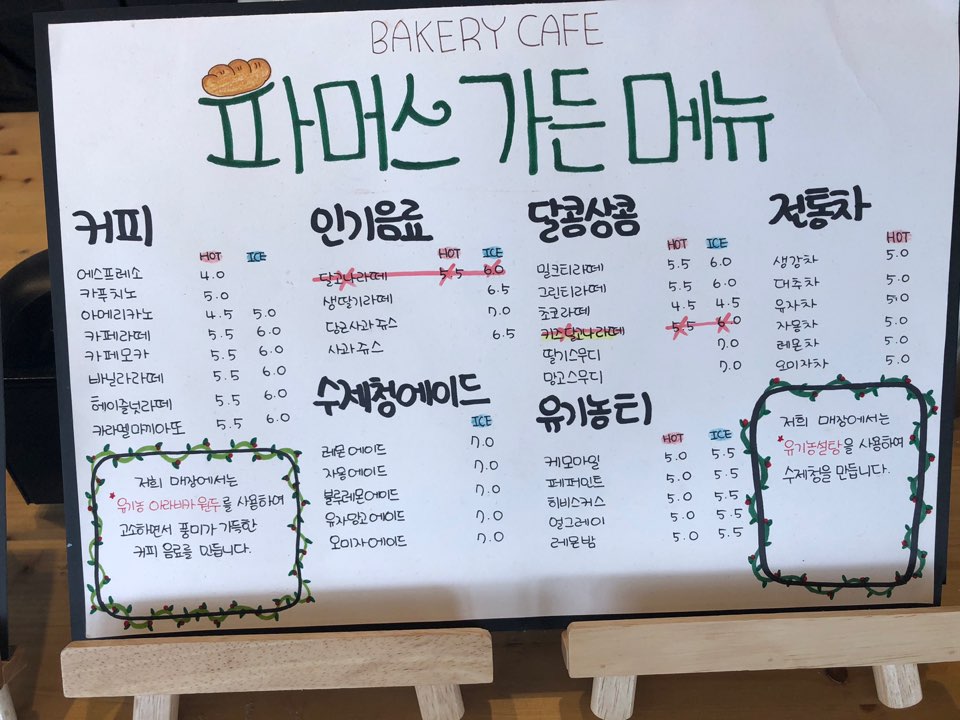 BAKERY CAFE
파머스 가든 메뉴
커피
HOT ICE
에스프레소 4.0
카푸치노 5.0
아메리카노 4.5 5.0
카페라떼 5.5 6.0
카페모카 5.5 6.0
바닐라라떼 5.5 6.0
헤이즐넛라떼 5.5 6.0
카라멜마끼아또 5.5 6.0
저희 매장에서는
*유기농 아라비카 원두를 사용하여
고소하면서 풍미가 가득한
커피 음료를 만듭니다.
인기음료
HOT ICE
달고나라떼 5.5 6.0
생딸기라떼 6.5
당근사과쥬스 7.0
사과쥬스 6.5
수제청에이드
ICE
레몬에이드 7.0
자몽에이드 7.0
블루레몬에이드 7.0
유자망고에이드 7.0
오미자에이드 7.0
달콤상콤
HOT ICE
밀크티라떼 5.5 6.0
그린티라떼 5.5 6.0
쵸코라떼 4.5 4.5
키즈달고나라떼 5.5 6.0
딸기스무디 7.0
망고스무디 7.0
유기농티
HOT ICE
케모마일 5.0 5.5
페퍼민트 5.0 5.5
히비스커스 5.0 5.5
얼그레이 5.0 5.5
레몬밤 5.0 5.5
전통차
HOT
생강차 5.0
대추차 5.0
유자차 5.0
자몽차 5.0
레몬차 5.0
오미자차 5.0
저희 매장에서는
*유기농설탕을 사용하여
수제청을 만듭니다.